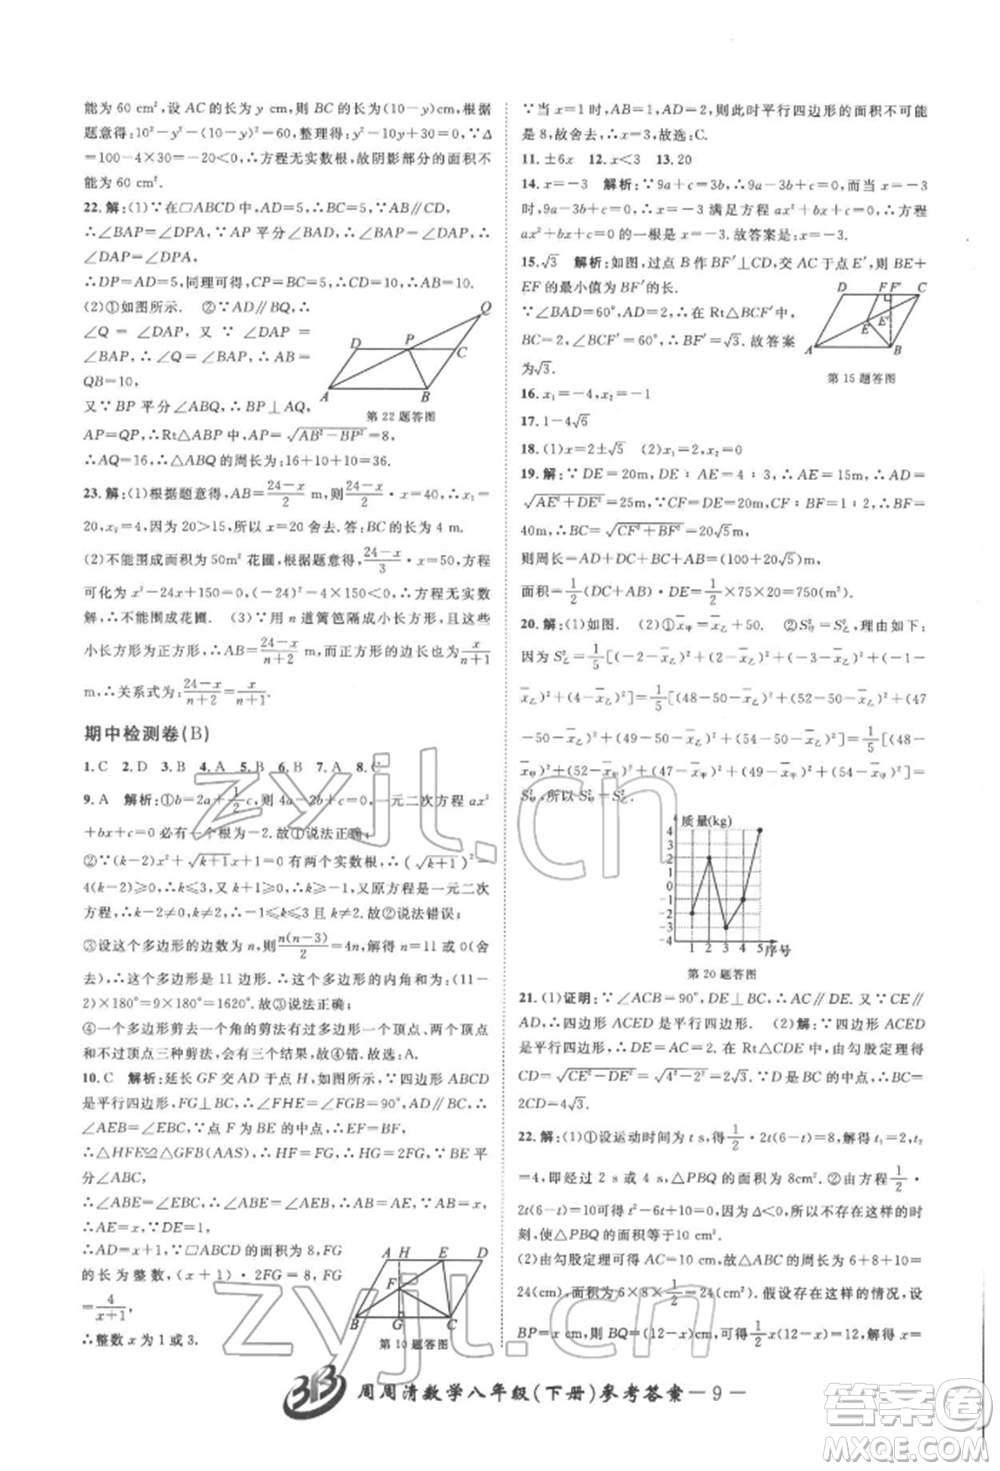 能为 60 cm²,设 AC 的长为 y cm,则 BC 的长为(10-y)cm,根据
题意得:10²-y²-(10-y)²=60,整理得:y²-10y+80=0,∵Δ
=100-4×30=-20<0,∴方程无实数根,故阴影部分的面积不
能为 60 cm².
22.解:(1)∵在□ABCD 中,AD=5,∴BC=AD=5,AB∥CD,
∴∠BAP=∠DPA,∵AP 平分∠BAD,∴∠BAP=∠DAP,∴
∠DAP=∠DPA,
∴DP=AD=5,同理可得,CP=BC=5,∴AB=CD=10.
(2)①如图所示. ②∵AD∥BQ,∴
∠Q=∠DAP,又∵∠DAP=
∠BAP,∴∠Q=∠BAP,∴AB=
QB=10,
又∵BP 平分∠ABQ,∴BP⊥AQ,
AP=QP,∴Rt△ABP 中,AP=√AB²-BP²=8,
∴AQ=16,∴△ABQ 的周长为:16+10+10=36.
D P C Q A B
第 22 题答图
23.解:(1)根据题意得,AB=(24-x)/2 m,则(24-x)/2·x=40,解得:x₁=
20,x₂=4,因为 20>15,所以 x=20 舍去.答:BC 的长为 4 m.
(2)不能围成面积为 50m² 花圃,根据题意得:(24-x)/3·x=50,方程
可化为 x²-24x+150=0,∵Δ=(-24)²-4×150<0,方程无实数解,
∴不能围成花圃. (3)∵用 n 道篱笆隔成小长方形,且这些
小长方形为正方形,∴AB=(24-x)/(n+2) m,而正方形的边长也为x/(n+1)
m,∴关系式为:(24-x)/(n+2)=x/(n+1).
期中检测卷(B)
1.C 2.D 3.B 4.A 5.B 6.B 7.A 8.C
9.A 解析:①b=2a+1/2c,则 4a-2b+c=0,一元二次方程 ax²
+bx+c=0 必有一个根为-2.故①说法正确;
②∵(k-2)x²+√k+1x=0 有两个实数根,∴(√k+1)²-
4(k-2)≥0,∴k≤3,又∵k+1≥0,∴k≥-1,又原方程是一元二次
方程,∴k≠2,∴-1≤k≤3,且 k≠2,故②说法错误;
③设这个多边形的边数为 n,则n(n-3)/2=4n,解得 n=11 或 0(舍
去),∴这个多边形是 11 边形.∴这个多边形的内角和为(11-
2)×180°=9×180°=1620°.故③说法正确;
④一个多边形剪去一个角的剪法有过多边形一个顶点、两个顶点
和不过顶点三种剪法,会有三个结果,故④错.故选:A.
10.C 解析:延长 GF 交 AD 于点 H,如图,∵四边形 ABCD
是平行四边形,FG⊥BC,∴∠FHE=∠FGB=90°,AD∥BC,∴
∠AEB=∠EBC,∵点 F 为 BE 的中点,∴BF=EF,
∴△HFE≌△GFB(AAS),∴HF=FG,∴HG=2FG,∵BE 平
分∠ABC,
∴∠ABE=∠EBC,∴∠ABE=∠AEB,∴AB=AE,∵AB=x,
∴AE=x,
∴AD=x+1,∵四边形 ABCD
的长为整数,(x+1)·2FG=8,
FG=4/(x+1),
∴整数 x 为 1 或 3.
A H E D F B G C
第 10 题答图
∵当 x=1 时,AB=1,AD=2,则此时平行四边形的面积不可能
是 8,故舍去,∴x=3,故选:C.
11.±6x 12.x<3 13.20
14.x=-3 解析:∵9a+c=3b,∴9a-3b+c=0,∴当 x=-3
时,9a-3b+c=0 满足方程 ax²+bx+c=0,∴方程 ax²+bx+c
=0(a≠0)的一根是 x=-3.故答案是:x=-3.
15.√3 解析:如图,过点 B 作 BF′⊥CD,交 AC 于点 E′,则 BE+
EF 的最小值为 BF′的长.
∵∠BAD=60°,AD=2,∴在 Rt△BCF′中,
∠BCF′=60°,BC=2,∴BF′=√3.故答案
为√3.
D F F′ C E E′ A B
第 15 题答图
16.x₁=-4,x₂=-1
17.1-4√6
18.(1)x=2±√5 (2)x₁=1,x₂=0
19.解:∵DE=20m,DE:AE=4:3,∴AE=15m,∴AD=
√AE²+DE²=25m,∵CF=DE=20m,CF:BF=1:2,∴BF=
40m,∴BC=√CF²+BF²=20√5m,
则周长=AD+DC+BC+AB=(100+20√5)m,
面积=1/2×(DC+AB)×DE=1/2×75×20=750(m²).
20.解:(1)如图. (2)①x̄甲=x̄乙+50. ②S²甲=S²乙,理由如下:
因为 S²乙=1/5[(-2-x̄乙)²+(2-x̄乙)²+(-3-x̄乙)²+(-1-
x̄乙)²+(4-x̄乙)²]=1/5[(48-50-x̄乙)²+(52-50-x̄乙)²+(47
-50-x̄乙)²+(49-50-x̄乙)²+(54-50-x̄乙)²]=1/5[(48-x̄甲)²
+(52-x̄甲)²+(47-x̄甲)²+(49-x̄甲)²+(54-x̄甲)²]=
S²甲,所以 S²甲=S²乙.
质量(kg)
4 3 2 1 0 -1 -2 -3 -4
1 2 3 4 5 序号
第 20 题答图
21.(1)证明:∵∠ACB=90°,DE⊥BC,∴AC∥DE,又∵CE∥
AD,∴四边形 ACED 是平行四边形. (2)解:∵四边形 ACED
是平行四边形,∴DE=AC=2.在 Rt△CDE 中,由勾股定理得
CD=√CE²-DE²=√4²-2²=2√3.∵D 是 BC 的中点,∴BC=
2CD=4√3.
22.解:(1)①设运动时间为 t s,得1/2·2t(6-t)=8,解得 t₁=2,t₂
=4,即经过 2 s 或 4 s,△PBQ 的面积为 8cm². ②由题意得1/2·
2t(6-t)=10,化简得 t²-6t+10=0,因为Δ<0,所以不存在这样的时
刻,使△PBQ 的面积等于 10 cm².
(2)由勾股定理可得 AC=10 cm,△ABC 的周长为 6+8+10=
24(cm),面积为 6×8×1/2=24(cm²).假设存在这样的情况,设
BP=x cm,则 BQ=(12-x)cm,可得1/2x(12-x)=12,化简得 x²
周周清数学八年级(下册)参考答案—9—
zyjl.cn
zyjl.cn
答案圈
MXQE.COM